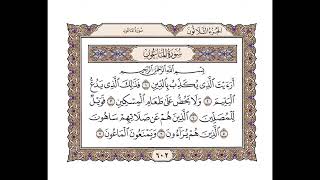 سُورَةُ المَاعُونِ الجُزْءُ الثَّلَاثُونَ
سُورَةُ المَاعُونِ
بِسْمِ اللَّهِ الرَّحْمَٰنِ الرَّحِيمِ
أَرَءَيْتَ الَّذِي يُكَذِّبُ بِالدِّينِ ① فَذَٰلِكَ الَّذِي يَدُعُّ
الْيَتِيمَ ② وَلَا يَحُضُّ عَلَىٰ طَعَامِ الْمِسْكِينِ ③ فَوَيْلٌ
لِّلْمُصَلِّينَ ④ الَّذِينَ هُمْ عَن صَلَاتِهِمْ سَاهُونَ
⑤ الَّذِينَ هُمْ يُرَاءُونَ ⑥ وَيَمْنَعُونَ الْمَاعُونَ ⑦
٦٠٢